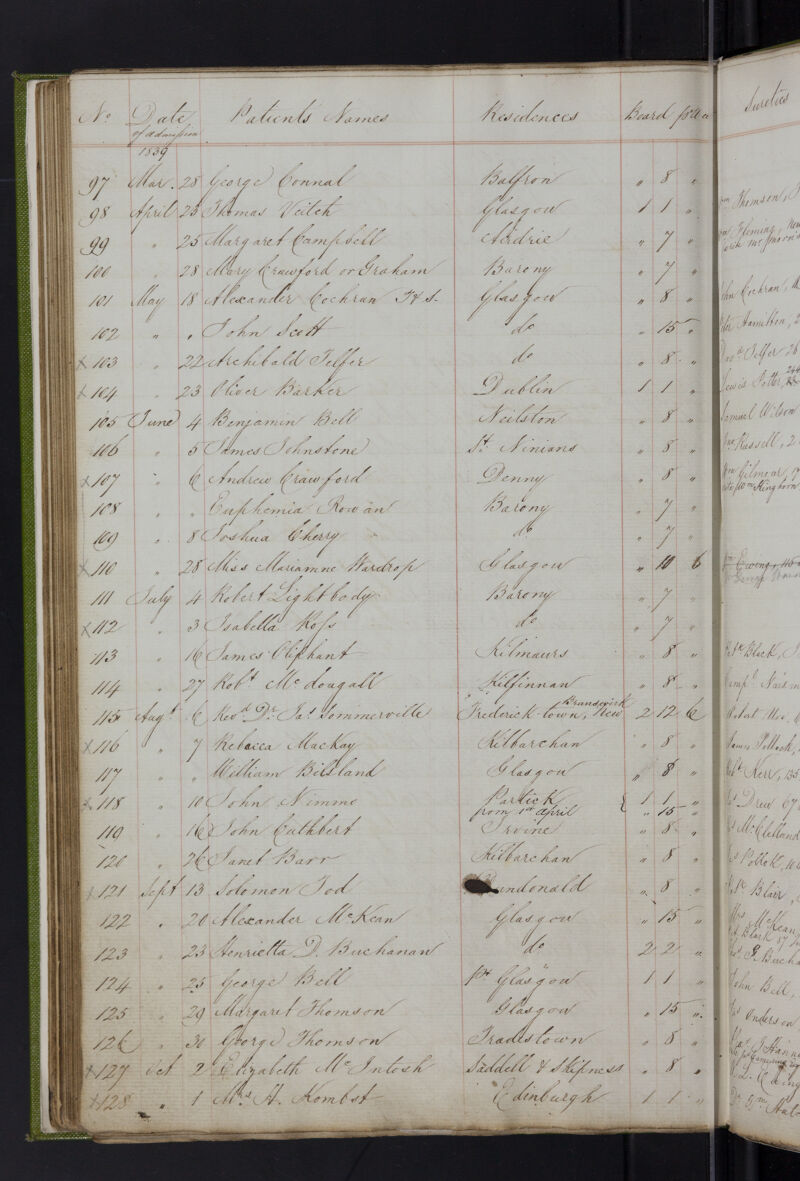 No Date of admission Patients Names Residences Board pr Week Sureties
1839
97 Mar. 28 George Connal Balfron " 8 "
98 April 23 Thomas Veitch Glasgow 1 1 " Thomson,
99 " 25 Margaret Campbell Airdrie " 7 " Fleming,
100 " 28 Mary Crawford or Graham Barony " 7 "
101 May 18 Alexander Cochran Glasgow " 8 " John Cochran,
102 " " John Scott do " 15 " Hamilton, 2
x 103 " 22 Archibald Telfer do " 8 " Telfer 26
x 104 " 23 Oliver Barker Dublin 1 1 " Lewis Potter,
105 June 4 Benjamin Bell Neilston " 8 " Samuel Wilson
106 " 5 James Johnstone St. Ninians " 8 " Russell, 2
x 107 " 6 Andrew Crawford Denny " 8 " Wm Gilmour, 17
108 " " Euphemia Rowan Barony " 7 "
109 " 8 Joshua Cherry do " 7 "
x 110 " 28 Miss Mariamne Wardrop Glasgow " 10 6 Ewing,
111 July 4 Robert Lightbody Barony " 7 "
x 112 " 3 Isabella Ross do " 7 "
113 " 16 James Oliphant Kilmaurs " 8 " Black,
114 " 27 Robt McDougall Kilfinnan " 8 "
115 Augt 6 Revd Dr. Jas Sommerville Frederick town, New Brunswick 2 12 6 Robert
x 116 " 7 Rebecca Mackay Kilbarchan " 8 " James Pollock,
117 " " William Bilsland Glasgow " 8 " Kerr, 135
x 118 " 10 John Nimmo Partick { 1 1 " Drew 67
from 1st April " 15 "
119 " 16 John Cuthbert Irvine " 8 " McClelland
120 " 26 Janet Barr Kilbarchan " 8 " Pollok,
x 121 Sept 13 Solomon Tod Dundonald " 8 " Blair,
122 " 20 Alexander McKean Glasgow " 15 " Mrs McKean
123 " 23 Henrietta D. Buchanan do 2 2 "
124 " 25 George Bell Pt Glasgow 1 1 " John Bell,
125 " 29 Margaret Thomson Glasgow " 15 " Anderson
126 " 30 George Thomson Tradestown " 8 "
x 127 Oct 2 Elizabeth McIntosh Saddell & Skipness " 8 "
x 128 " 1 Mrs A. Kombst Edinburgh 1 1 "